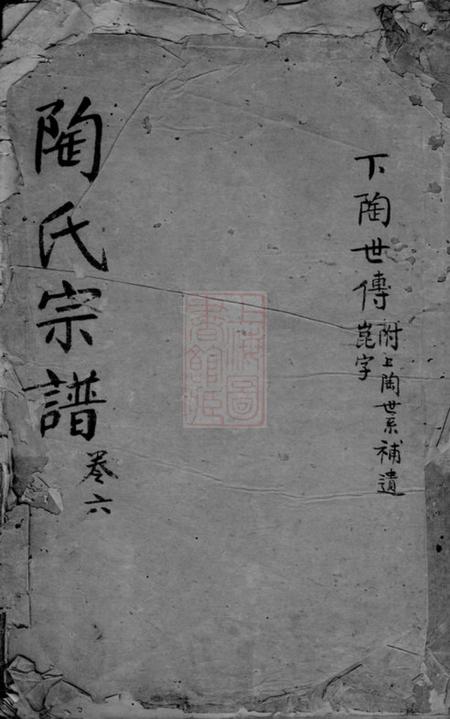 下陶世傳
崑字
附上陶世系補遺
陶氏宗譜
卷六
上海圖
書館藏